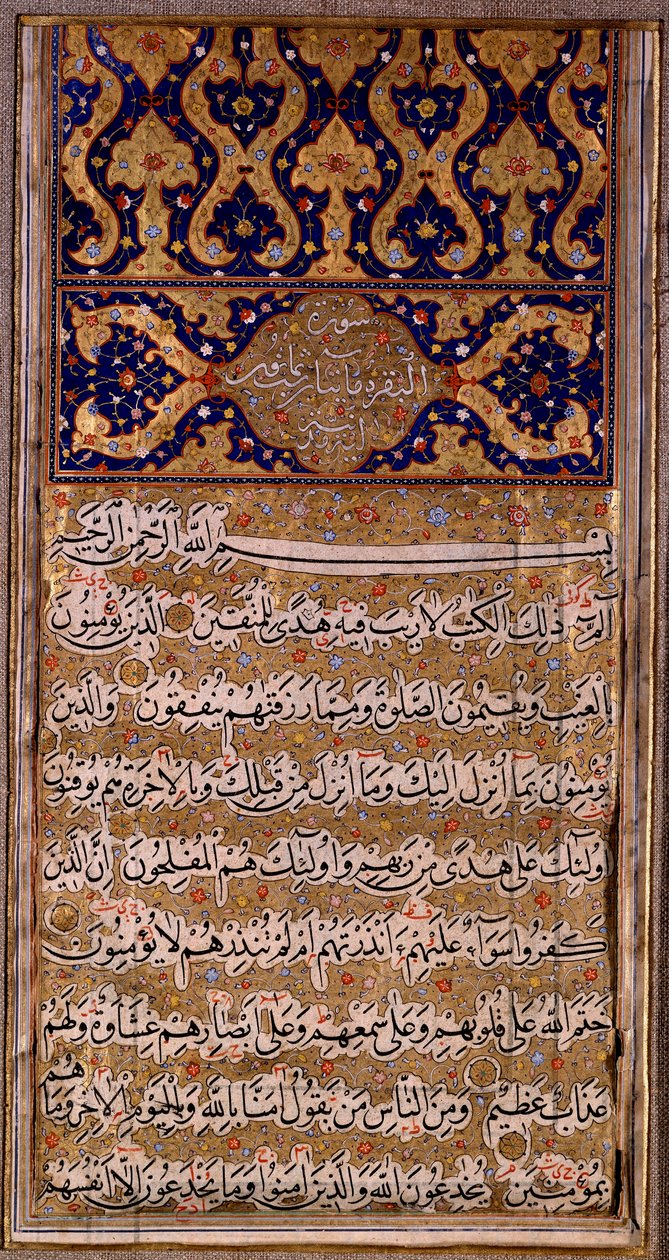 سورة
البقرة مائتا و ست و ثمانون
اية مدنية
بِسْمِ اللَّهِ الرَّحْمٰنِ الرَّحِيمِ
الٓمٓ ذٰلِكَ الْكِتٰبُ لَا رَيْبَ فِيهِ هُدًى لِلْمُتَّقِينَ الَّذِينَ يُؤْمِنُونَ
بِالْغَيْبِ وَيُقِيمُونَ الصَّلٰوةَ وَمِمَّا رَزَقْنٰهُمْ يُنْفِقُونَ وَالَّذِينَ
يُؤْمِنُونَ بِمَٓا اُنْزِلَ اِلَيْكَ وَمَٓا اُنْزِلَ مِنْ قَبْلِكَ وَبِالْاٰخِرَةِ هُمْ يُوقِنُونَ
اُولٰٓئِكَ عَلٰى هُدًى مِنْ رَبِّهِمْ وَاُولٰٓئِكَ هُمُ الْمُفْلِحُونَ اِنَّ الَّذِينَ
كَفَرُوا سَوَٓاءٌ عَلَيْهِمْ ءَاَنْذَرْتَهُمْ اَمْ لَمْ تُنْذِرْهُمْ لَا يُؤْمِنُونَ
خَتَمَ اللَّهُ عَلٰى قُلُوبِهِمْ وَعَلٰى سَمْعِهِمْ وَعَلٰٓى اَبْصَارِهِمْ غِشَاوَةٌ وَلَهُمْ
عَذَابٌ عَظِيمٌ وَمِنَ النَّاسِ مَنْ يَقُولُ اٰمَنَّا بِاللَّهِ وَبِالْيَوْمِ الْاٰخِرِ وَمَا هُمْ
بِمُؤْمِنِينَ يُخٰدِعُونَ اللَّهَ وَالَّذِينَ اٰمَنُوا وَمَا يَخْدَعُونَ اِلَّٓا اَنْفُسَهُمْ